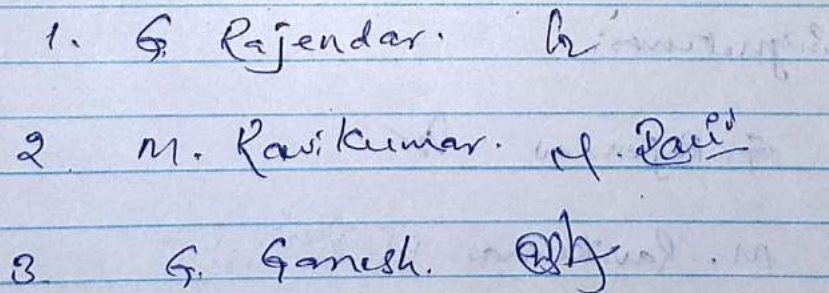 1. G. Rajendar.
2 M. Ravikumar. M. Ravi
3 G. Ganesh.